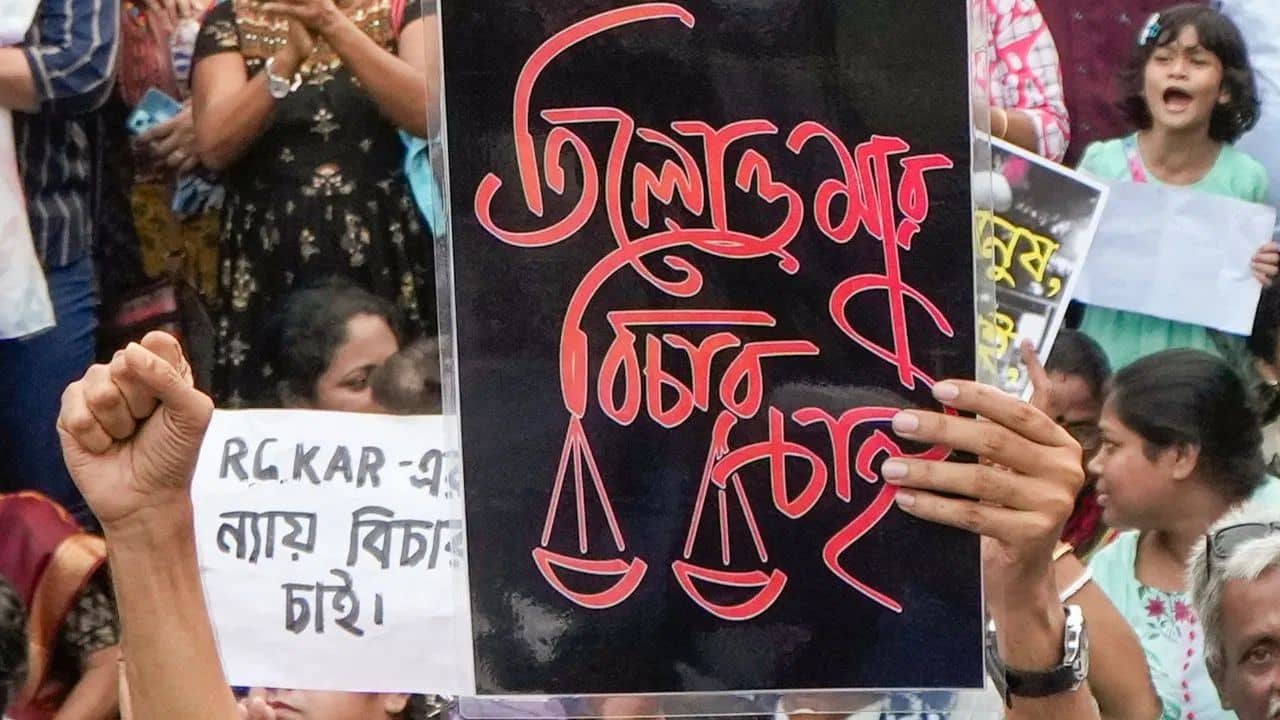 তিলোত্তমার
বিচার
চাই
R.G.KAR-এর
ন্যায় বিচার
চাই।
মানুষ,